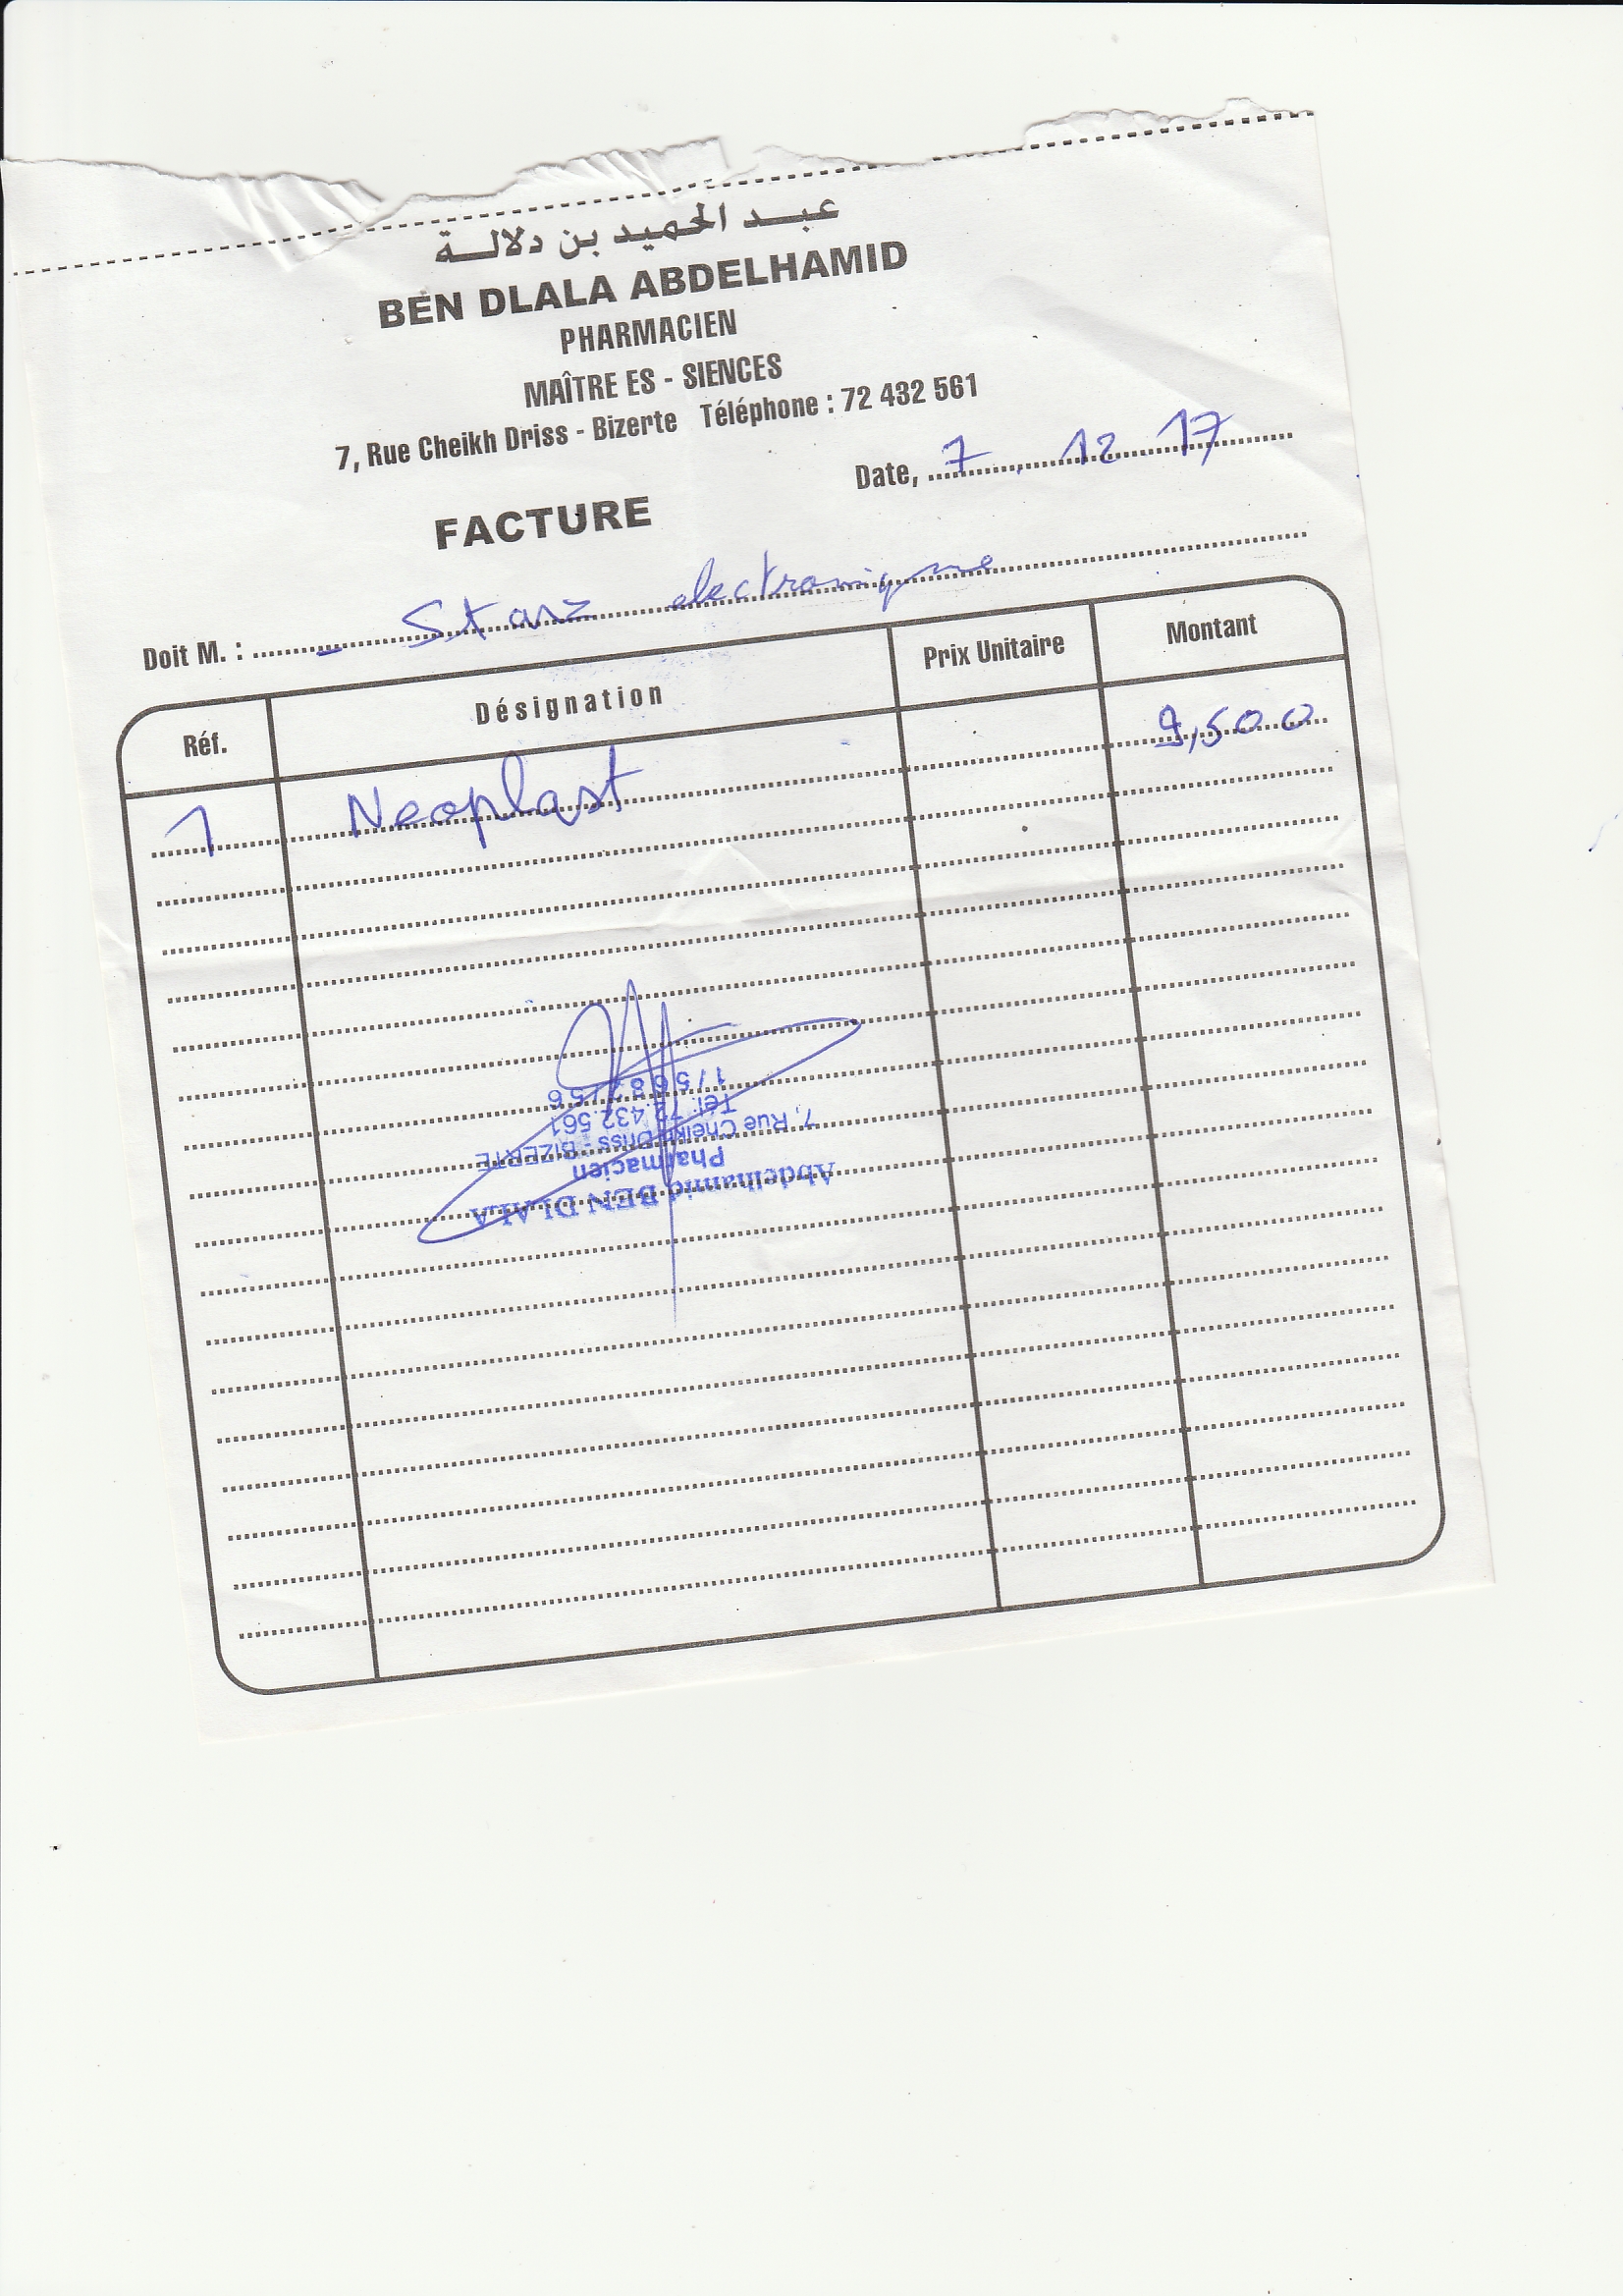 عبد الحميد بن دلالة
BEN DLALA ABDELHAMID
PHARMACIEN
MAÎTRE ES - SIENCES
7, Rue Cheikh Driss - Bizerte Téléphone : 72 432 561
Date, 7 12 17
FACTURE
Doit M. : Starz electronique
Réf. Désignation Prix Unitaire Montant
1 Neoplast 9,500
Abdelhamid BEN DLALA
Pharmacien
7, Rue Cheikh Driss - BIZERTE
Tél: 72.432.561